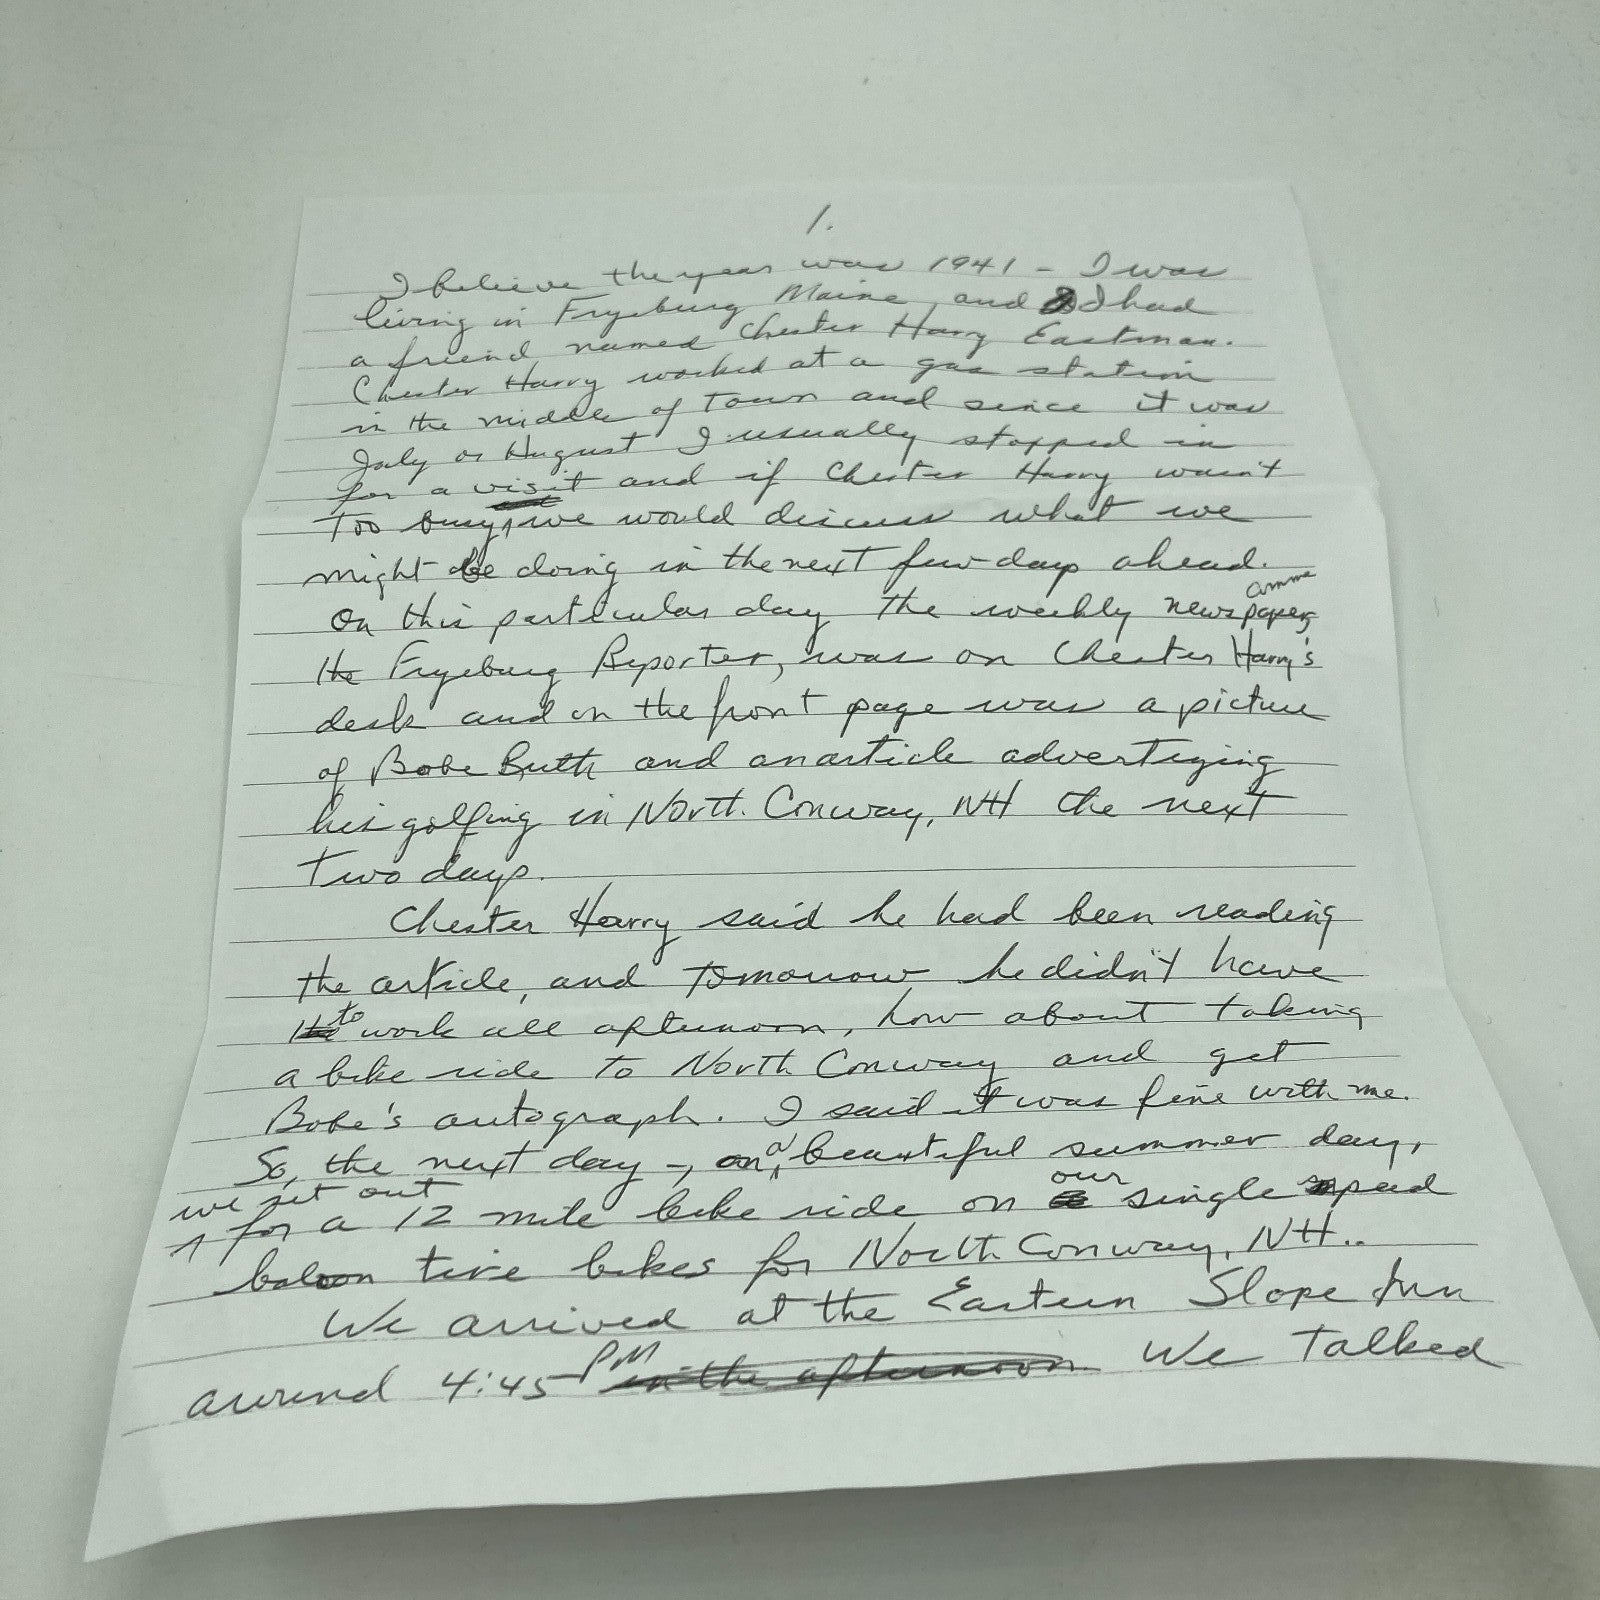 1.
I believe the year was 1941 - I was
living in Fryeburg Maine, and I had
a friend named Chester Harry Eastman.
Chester Harry worked at a gas station
in the middle of town and since it was
July or August I usually stopped in
for a visit and if Chester Harry wasn't
too busy, we would discuss what we
might be doing in the next few days ahead.
On this particular day the weekly newspaper,
the Fryeburg Reporter, was on Chester Harry's
desk and on the front page was a picture
of Babe Ruth and an article advertizing
his golfing in North Conway, NH the next
two days.
Chester Harry said he had been reading
the article, and tomorrow he didn't have
to work all afternoon, how about taking
a bike ride to North Conway and get
Babe's autograph. I said it was fine with me.
So, the next day -, a beautiful summer day,
we set out
for a 12 mile bike ride on our single speed
baloon tire bikes for North Conway, NH..
We arrived at the Eastern Slope Inn
around 4:45 PM in the afternoon We talked